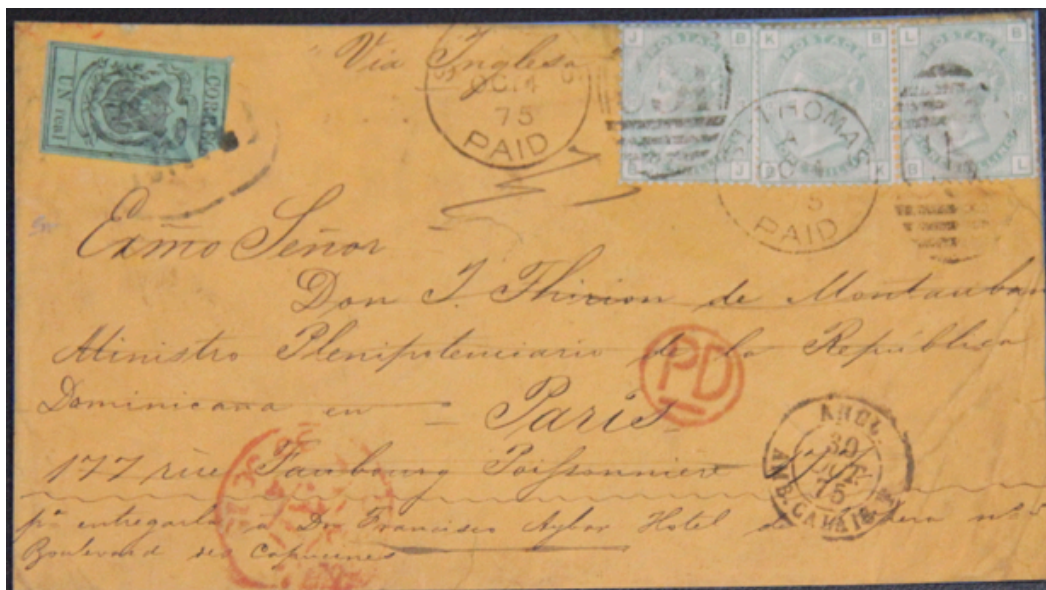 "Via Inglesa"
CORREOS
UN real
OC 14
75
PAID
J B
K B
L B
POSTAGE
POSTAGE
POSTAGE
B J
B K
B L
THOMAS
PAID
Exmo Señor
Don J. Thirion de Montauban
Ministro Plenipotenciario de la República
Dominicana en
Paris
PD
177 rue Faubourg Poissonnier
ANGL.
30
OCT
75
AMB. CALAIS
pa entregarla a Dn Francisco Aybar Hotel de
Boulevard des Capucines